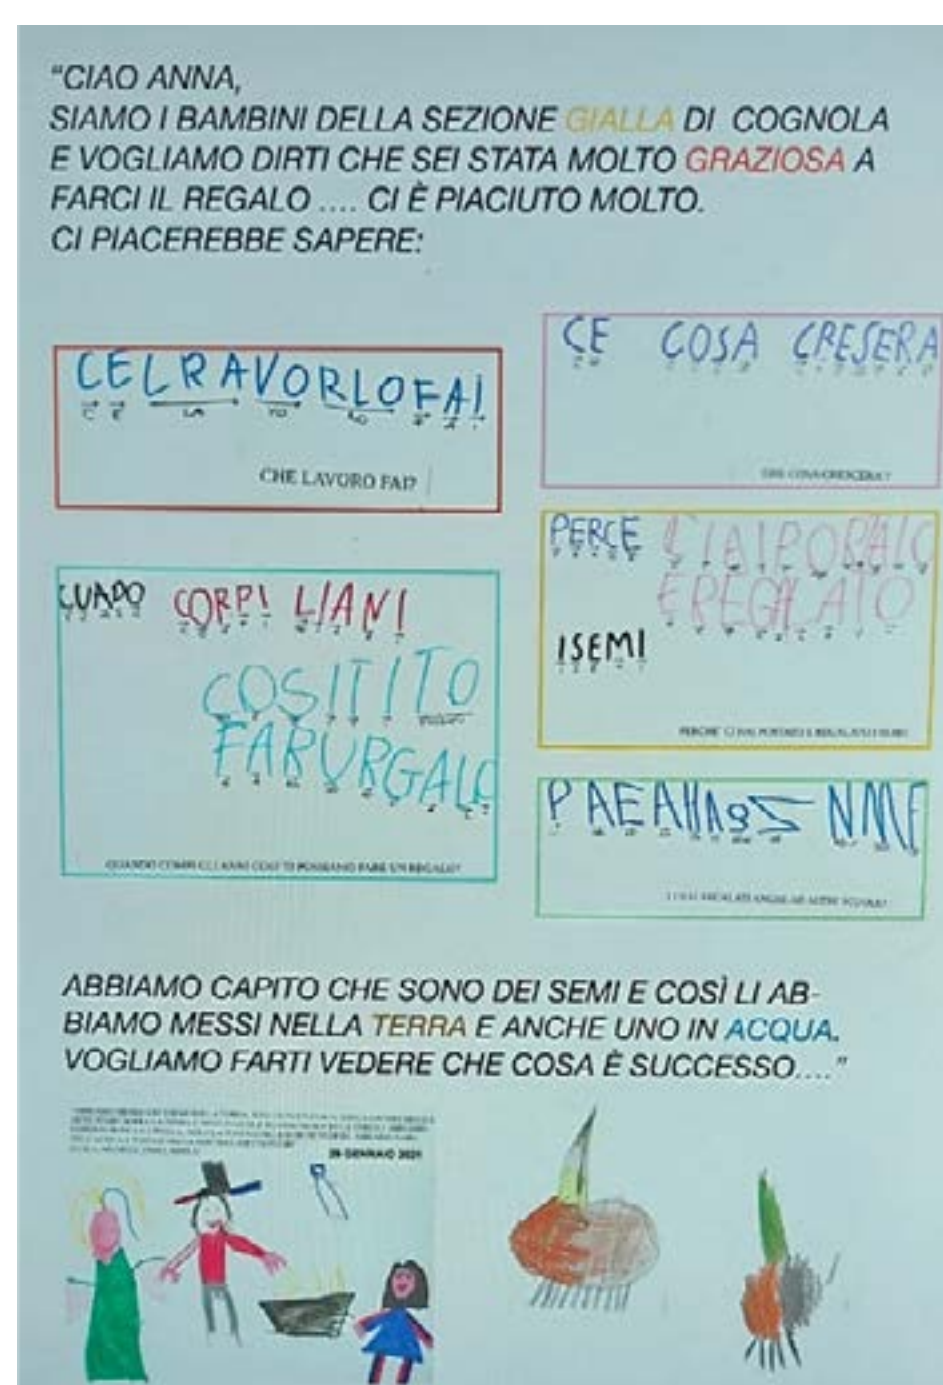 "CIAO ANNA,
SIAMO I BAMBINI DELLA SEZIONE GIALLA DI COGNOLA
E VOGLIAMO DIRTI CHE SEI STATA MOLTO GRAZIOSA A
FARCI IL REGALO .... CI È PIACIUTO MOLTO.
CI PIACEREBBE SAPERE:
CELRAVORLOFAI
C E LA VO RO F A I
CHE LAVORO FAI?
CUADO CORPI LIANI
COSITITO
FARURGALO
QUANDO COMPI GLI ANNI COSÌ TI POSSIAMO FARE UN REGALO?
CE COSA CRESERA
CHE COSA CRESCERA'?
PERCE CIAIPORAIO
EREGALATO
ISEMI
PERCHE' CI HAI PORTATO E REGALATO I SEMI?
LI HAI REGALATI ANCHE AD ALTRE SCUOLE?
ABBIAMO CAPITO CHE SONO DEI SEMI E COSÌ LI AB-
BIAMO MESSI NELLA TERRA E ANCHE UNO IN ACQUA.
VOGLIAMO FARTI VEDERE CHE COSA È SUCCESSO...."
26 GENNAIO 2021